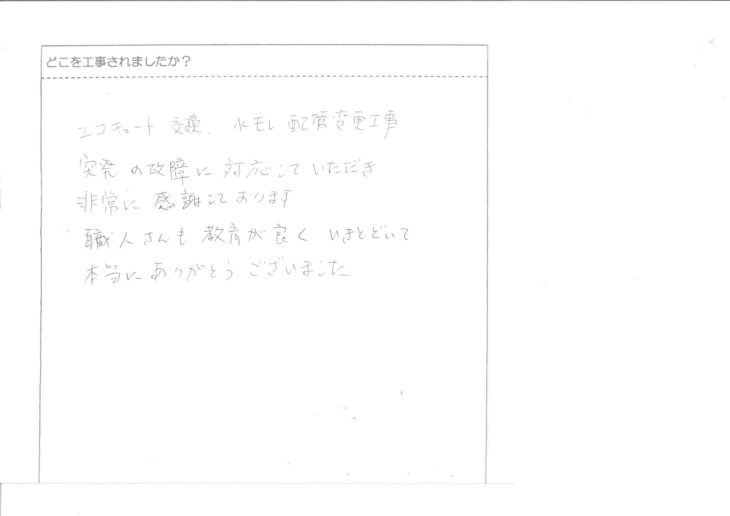 どこを工事されましたか？
エコキュート 交換、水モレ 配管変更工事
突発の故障に対応していただき
非常に感謝しております
職人さんも教育が良くいきとどいて
本当にありがとうございました